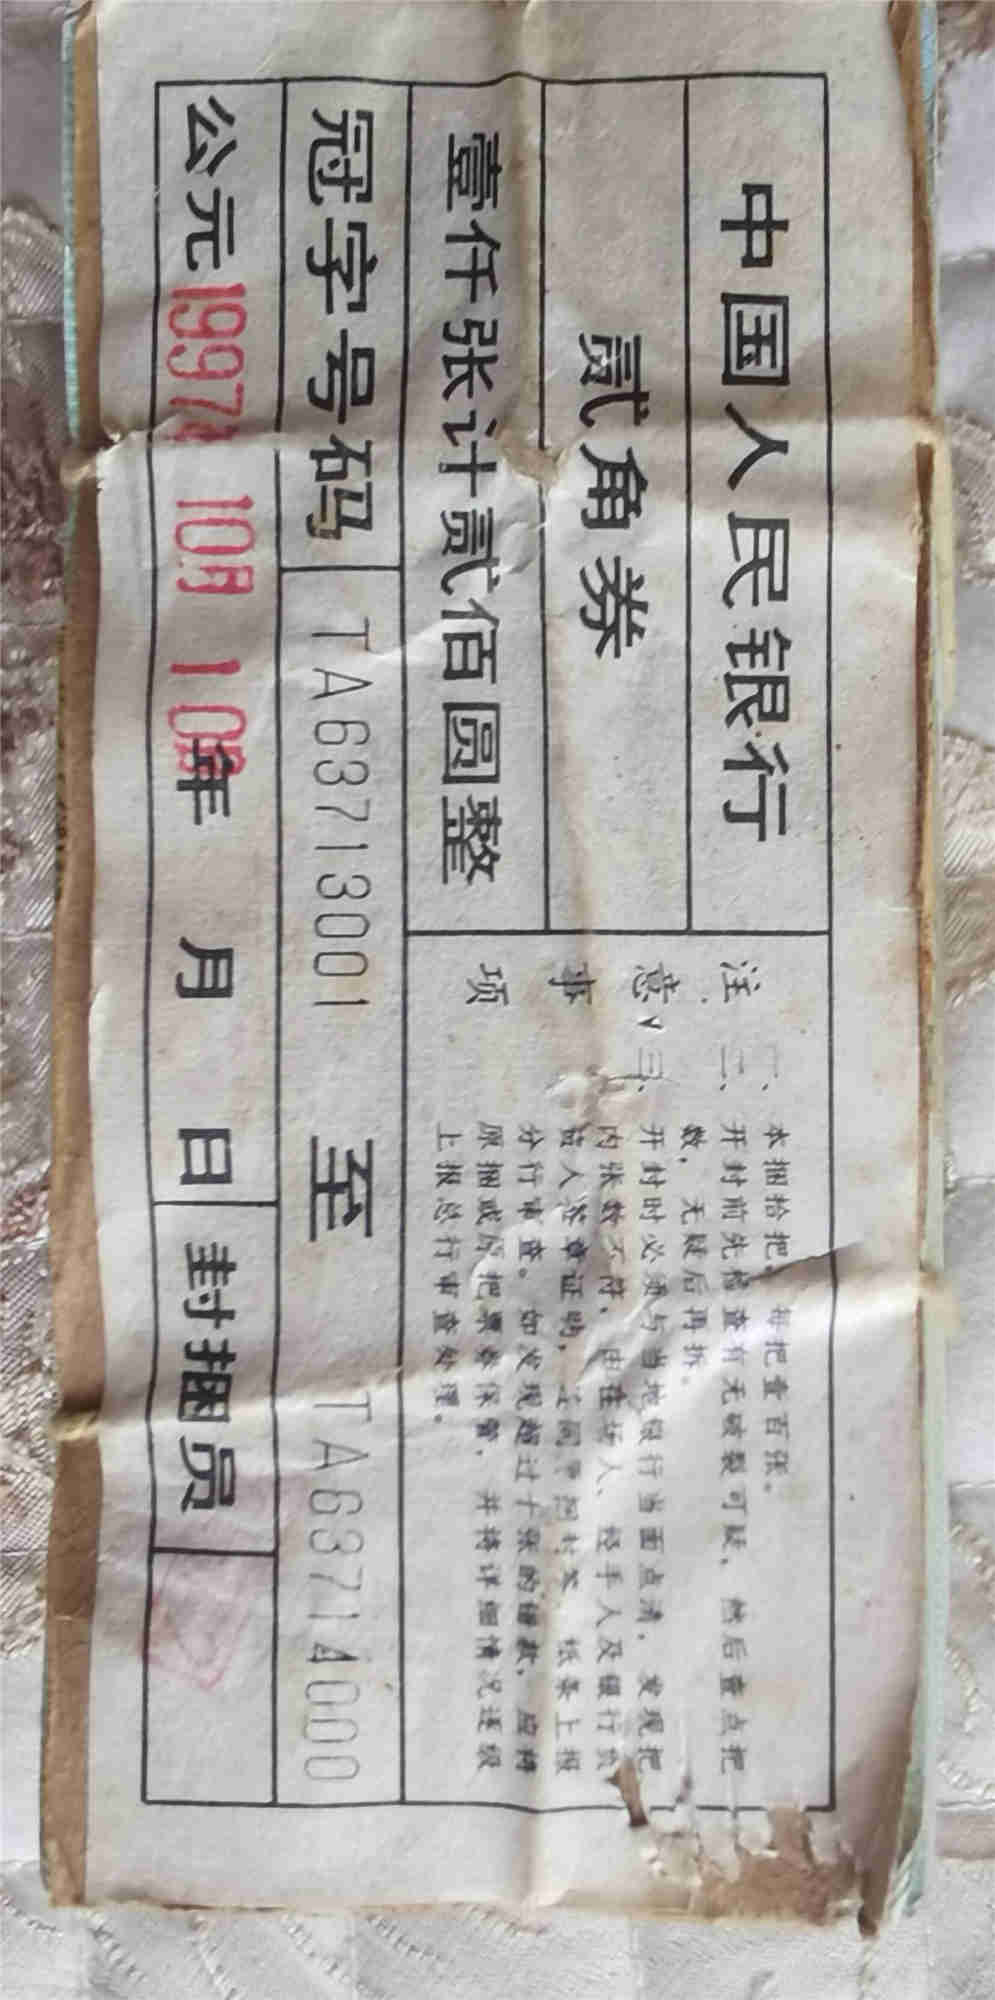 中国人民银行
贰角券
壹仟张计贰佰圆整
注意事项
一、本捆拾把。每把壹百张。
二、开封前先检查有无破裂可疑，然后查点把
数，无疑后再拆。
三、开封时必须与当地银行当面点清，发现把
内张数不符，由在场人、经手人及银行负
责人签章证明，连同原封签、纸条上报
分行审查。如发现超过十张的错款，应将
原捆或原把票券保管，并将详细情况逐级
上报总行审查处理。
冠字号码 TA63713001 至 TA63714000
公元 年 月 日 封捆员
1997年10月10日